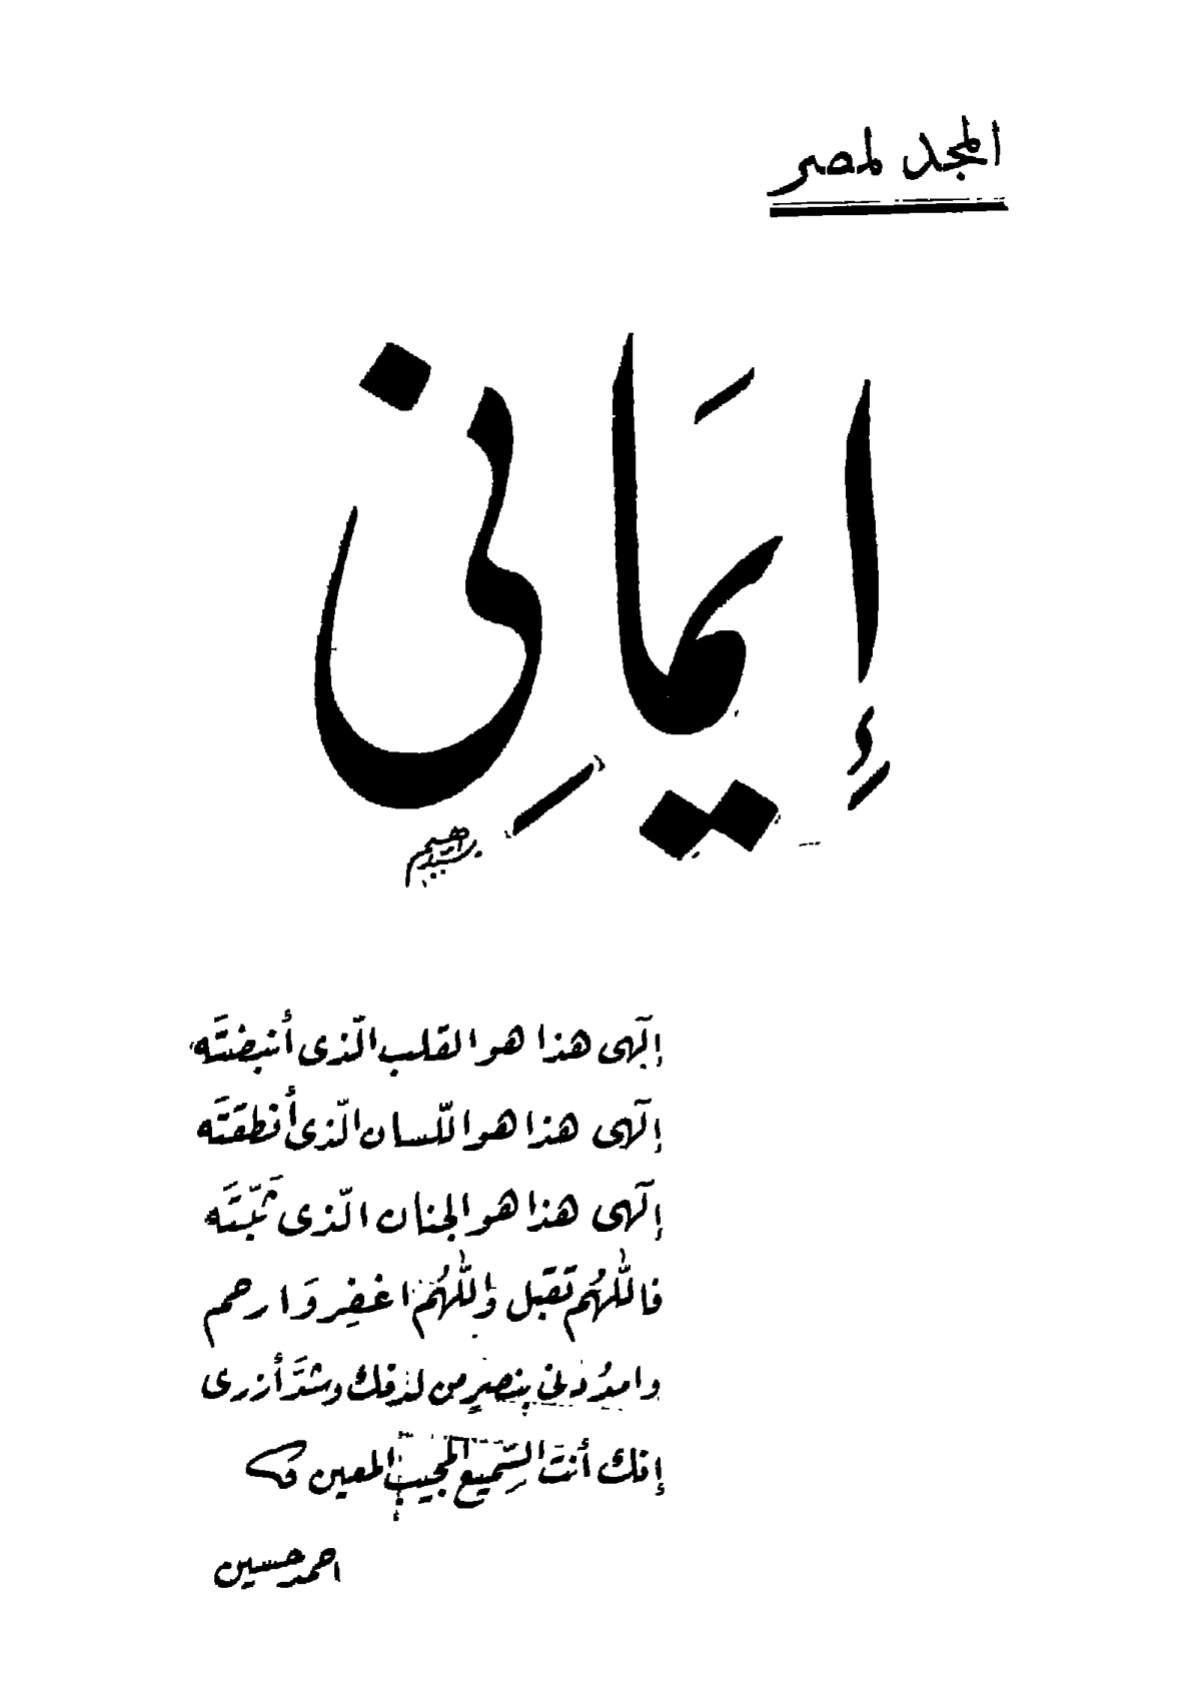 المجد لمصر
إِيمَانِى
إلٓهى هذا هو القلب الّذى أنبضتَه
إلٓهى هذا هو اللّسان الّذى أنطقتَه
إلٓهى هذا هو الجنان الّذى ثَبّتَّه
فاللّهُم تقبل واللّهُم اغفِر وَارحم
وامدُدنى بنصرٍ من لدنك وشدَّ أزرى
إنك أنتَ السَّمِيع المجيب المعين
احمد حسين